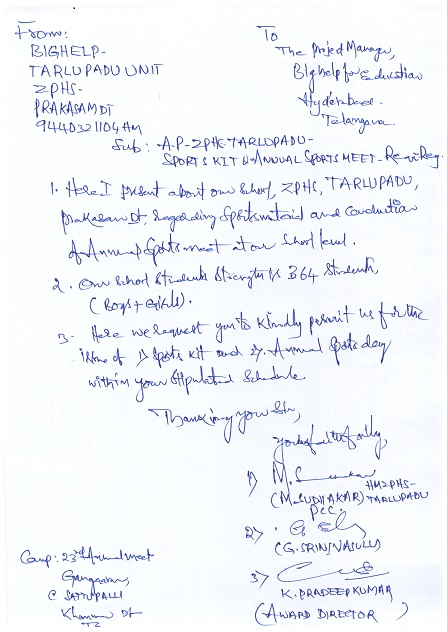 From:
BIGHELP-
TARLUPADU UNIT
ZPHS-
PRAKASAM DT
9440321104 HM
To
The Project Manager,
Bighelp for Education
Hyderabad.
Telangana.
Sub: -A.P-ZPHS-TARLUPADU-
SPORTS KIT & ANNUAL SPORTS MEET - Reg.
1. Here I present about our school, ZPHS, TARLUPADU,
prakasam Dt, regarding Sports material and Conduction
of Annual Sports meet at our School level.
2. Our School Students Strength is 364 Students,
(Boys + Girls).
3. Here we request you to kindly permit us for the
issue of 1) Sports Kit and 2). Annual Sports day
within your stipulated Schedule.
Thanking you Sir,
yours faithfully,
1) M.
(M. SUDHAKAR) HM ZPHS-
TARLUPADU
2)
(G. SRINIVASULU)
3)
K. PRADEEP KUMAR
(AWARD DIRECTOR)
Camp: 23rd Annual meet
Gangaram,
SATTUPALLI
Khammam Dt
TS